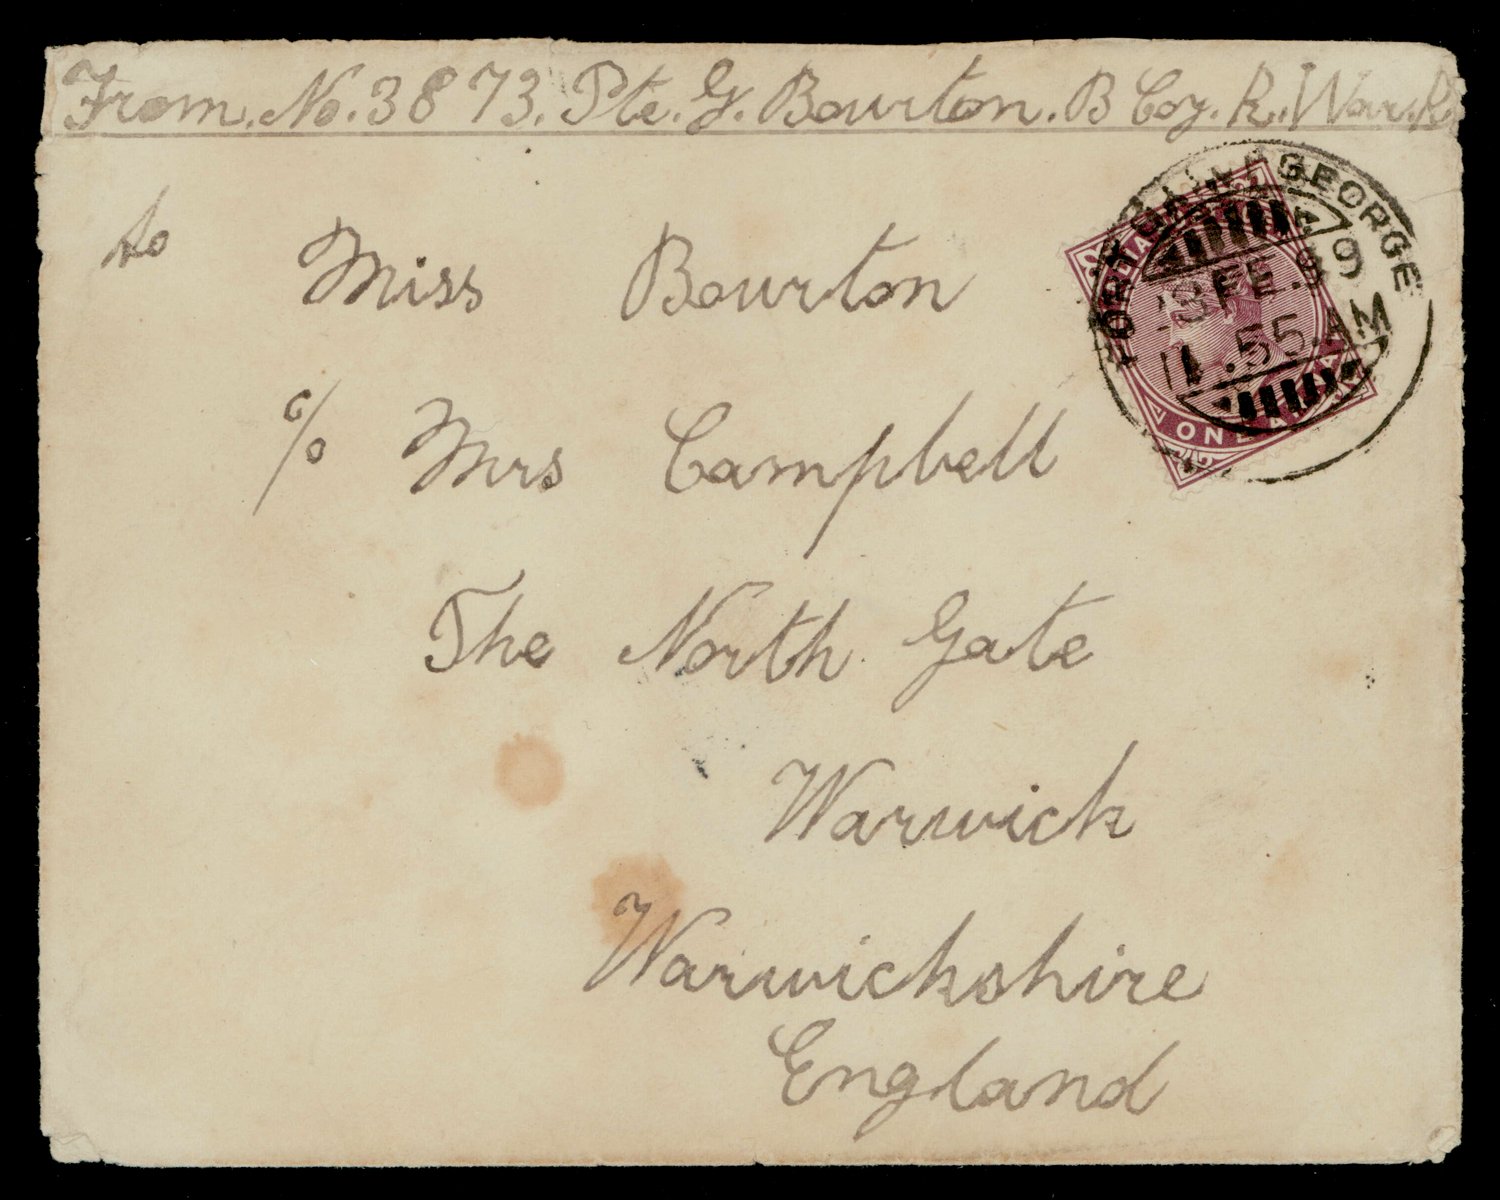 From. No. 3873. Pte. G. Bourton. B Coy. R. War. R
to Miss Bourton
c/o Mrs Campbell
The North Gate
Warwick
Warwickshire
England
GEORGE
FE. 99
11.55 AM
ONE